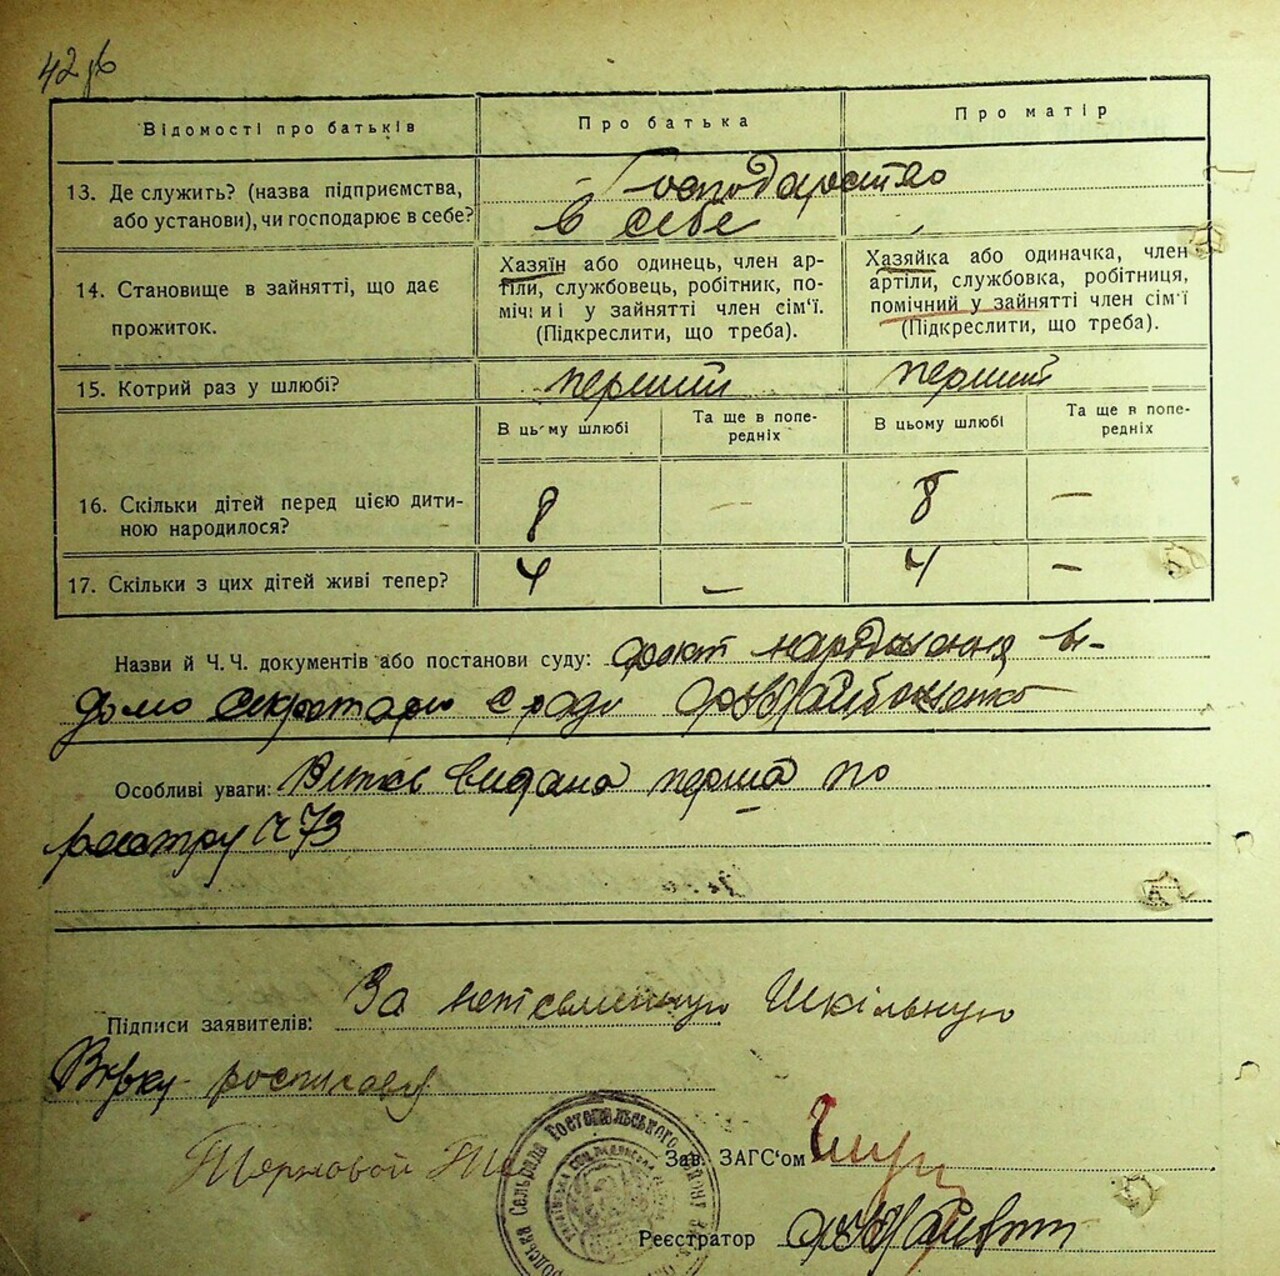 42
Відомості про батьків
Про батька
Про матір
13. Де служить? (назва підприємства,
або установи), чи господарює в себе?
Господарство
в себе
14. Становище в зайнятті, що дає
прожиток.
Хазяїн або одинець, член ар-
тіли, службовець, робітник, по-
мічниі у зайнятті член сім'ї.
(Підкреслити, що треба).
Хазяйка або одиначка, член
артіли, службовка, робітниця,
помічний у зайнятті член сім'ї
(Підкреслити, що треба).
15. Котрий раз у шлюбі?
перший
перший
В цьому шлюбі
Та ще в попе-
редніх
В цьому шлюбі
Та ще в попе-
редніх
16. Скільки дітей перед цією дити-
ною народилося?
8
—
8
—
17. Скільки з цих дітей живі тепер?
4
—
4
—
Назви й Ч.Ч. документів або постанови суду: факт народження ві-
домо секретарю с ради
Особливі уваги: видана перша по
реєстру ч 73
Підписи заявителів: За неписьменную Шкільную
Вірку росписався
Терновой
Сельрада Костопільського району
Зав. ЗАГС'ом
Реєстратор